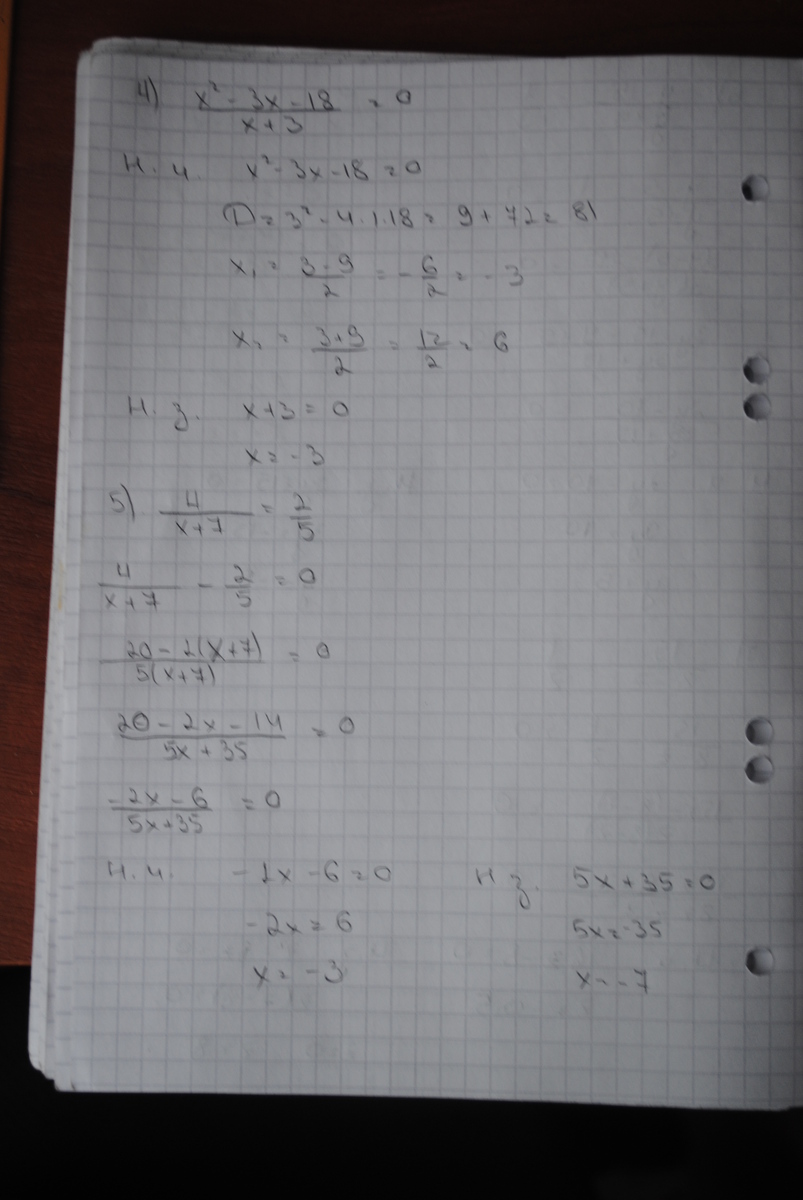 4) (x² - 3x - 18)/(x + 3) = 0
Н. ч. x² - 3x - 18 = 0
D = 3² - 4·1·18 = 9 + 72 = 81
x₁ = (3 - 9)/2 = -6/2 = -3
x₂ = (3+9)/2 = 12/2 = 6
Н. з. x+3 = 0
x = -3
5) 4/(x+7) = 2/5
4/(x+7) - 2/5 = 0
(20 - 2(x+7))/(5(x+7)) = 0
(20 - 2x - 14)/(5x + 35) = 0
(-2x - 6)/(5x+35) = 0
Н. ч. -2x - 6 = 0 Н з. 5x + 35 = 0
-2x = 6 5x = -35
x = -3 x = -7